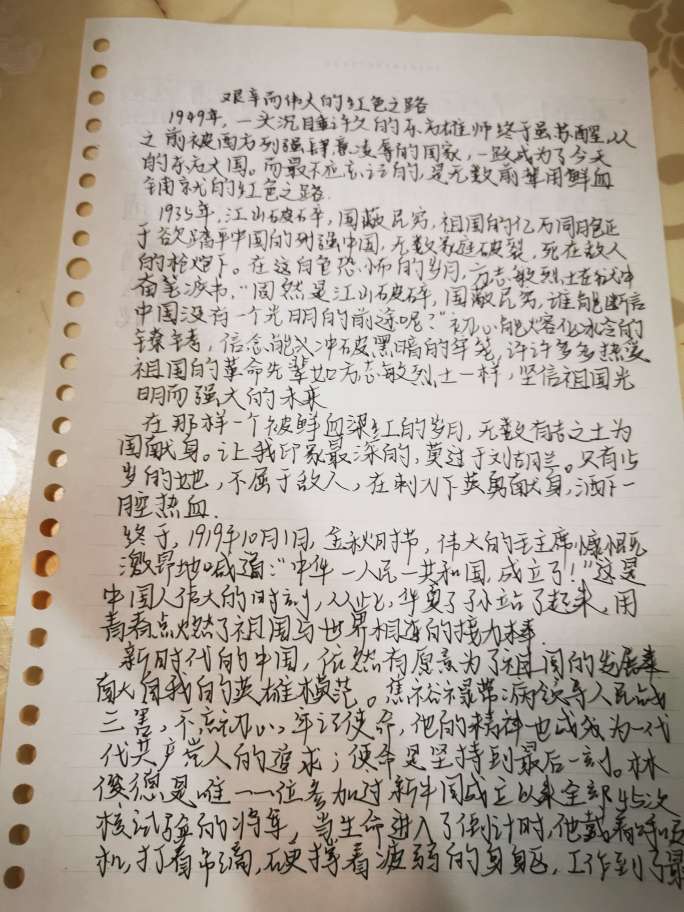 艰辛而伟大的红色之路
1949年,一头沉睡许久的东方雄狮终于虽苏醒,从
之前被西方列强肆意凌辱的国家,一跃成为了今天
的东方大国。而最不应忘记的,是无数前辈用鲜血
铺就的红色之路.
1935年,江山破碎,国敝民穷,祖国的亿万同胞正
于欲踏平中国的列强中国,无数家庭破裂,死在敌人
的枪炮下。在这白色恐怖的岁月,方志敏烈士在狱中
奋笔疾书,“固然是江山破碎,国敝民穷,谁能断言
中国没有一个光明的前途呢?”初心能火容化冰冷的
镣铐,信念能以冲破黑暗的年笼,许许多多热爱
祖国的革命先辈如方志敏烈士一样,坚信祖国光
明而强大的未来
在那样一个被鲜血染红的岁月,无数有志之士为
国献身。让我印象最深的,莫过于刘胡兰。只有15
岁的她,不屈于敌人,在刺刀下英勇献身,洒下一
腔热血.
终于,1919年10月1日,金秋时节,伟大的毛主席慷慨
激昂地喊道:“中华一人民一共和国,成立了!”这是
中国人伟大的时刻,从此,华夏子孙站了起来,用
青春点燃了祖国与世界相连的接力棒.
新时代的中国,依然有愿意为了祖国的发展奉
献自我的英雄模范。焦裕禄带病领导人民战
三害,不忘初心,牢记使命,他的精神也成为一代
代共产党人的追求;使命是坚持到最后一刻。林
俊德是唯一一位参加过新中国成立以来全部45次
核试验的将军,当生命进入了倒计时,他戴着呼吸
机,打着吊滴,硬撑着疲弱的身躯,工作到了最